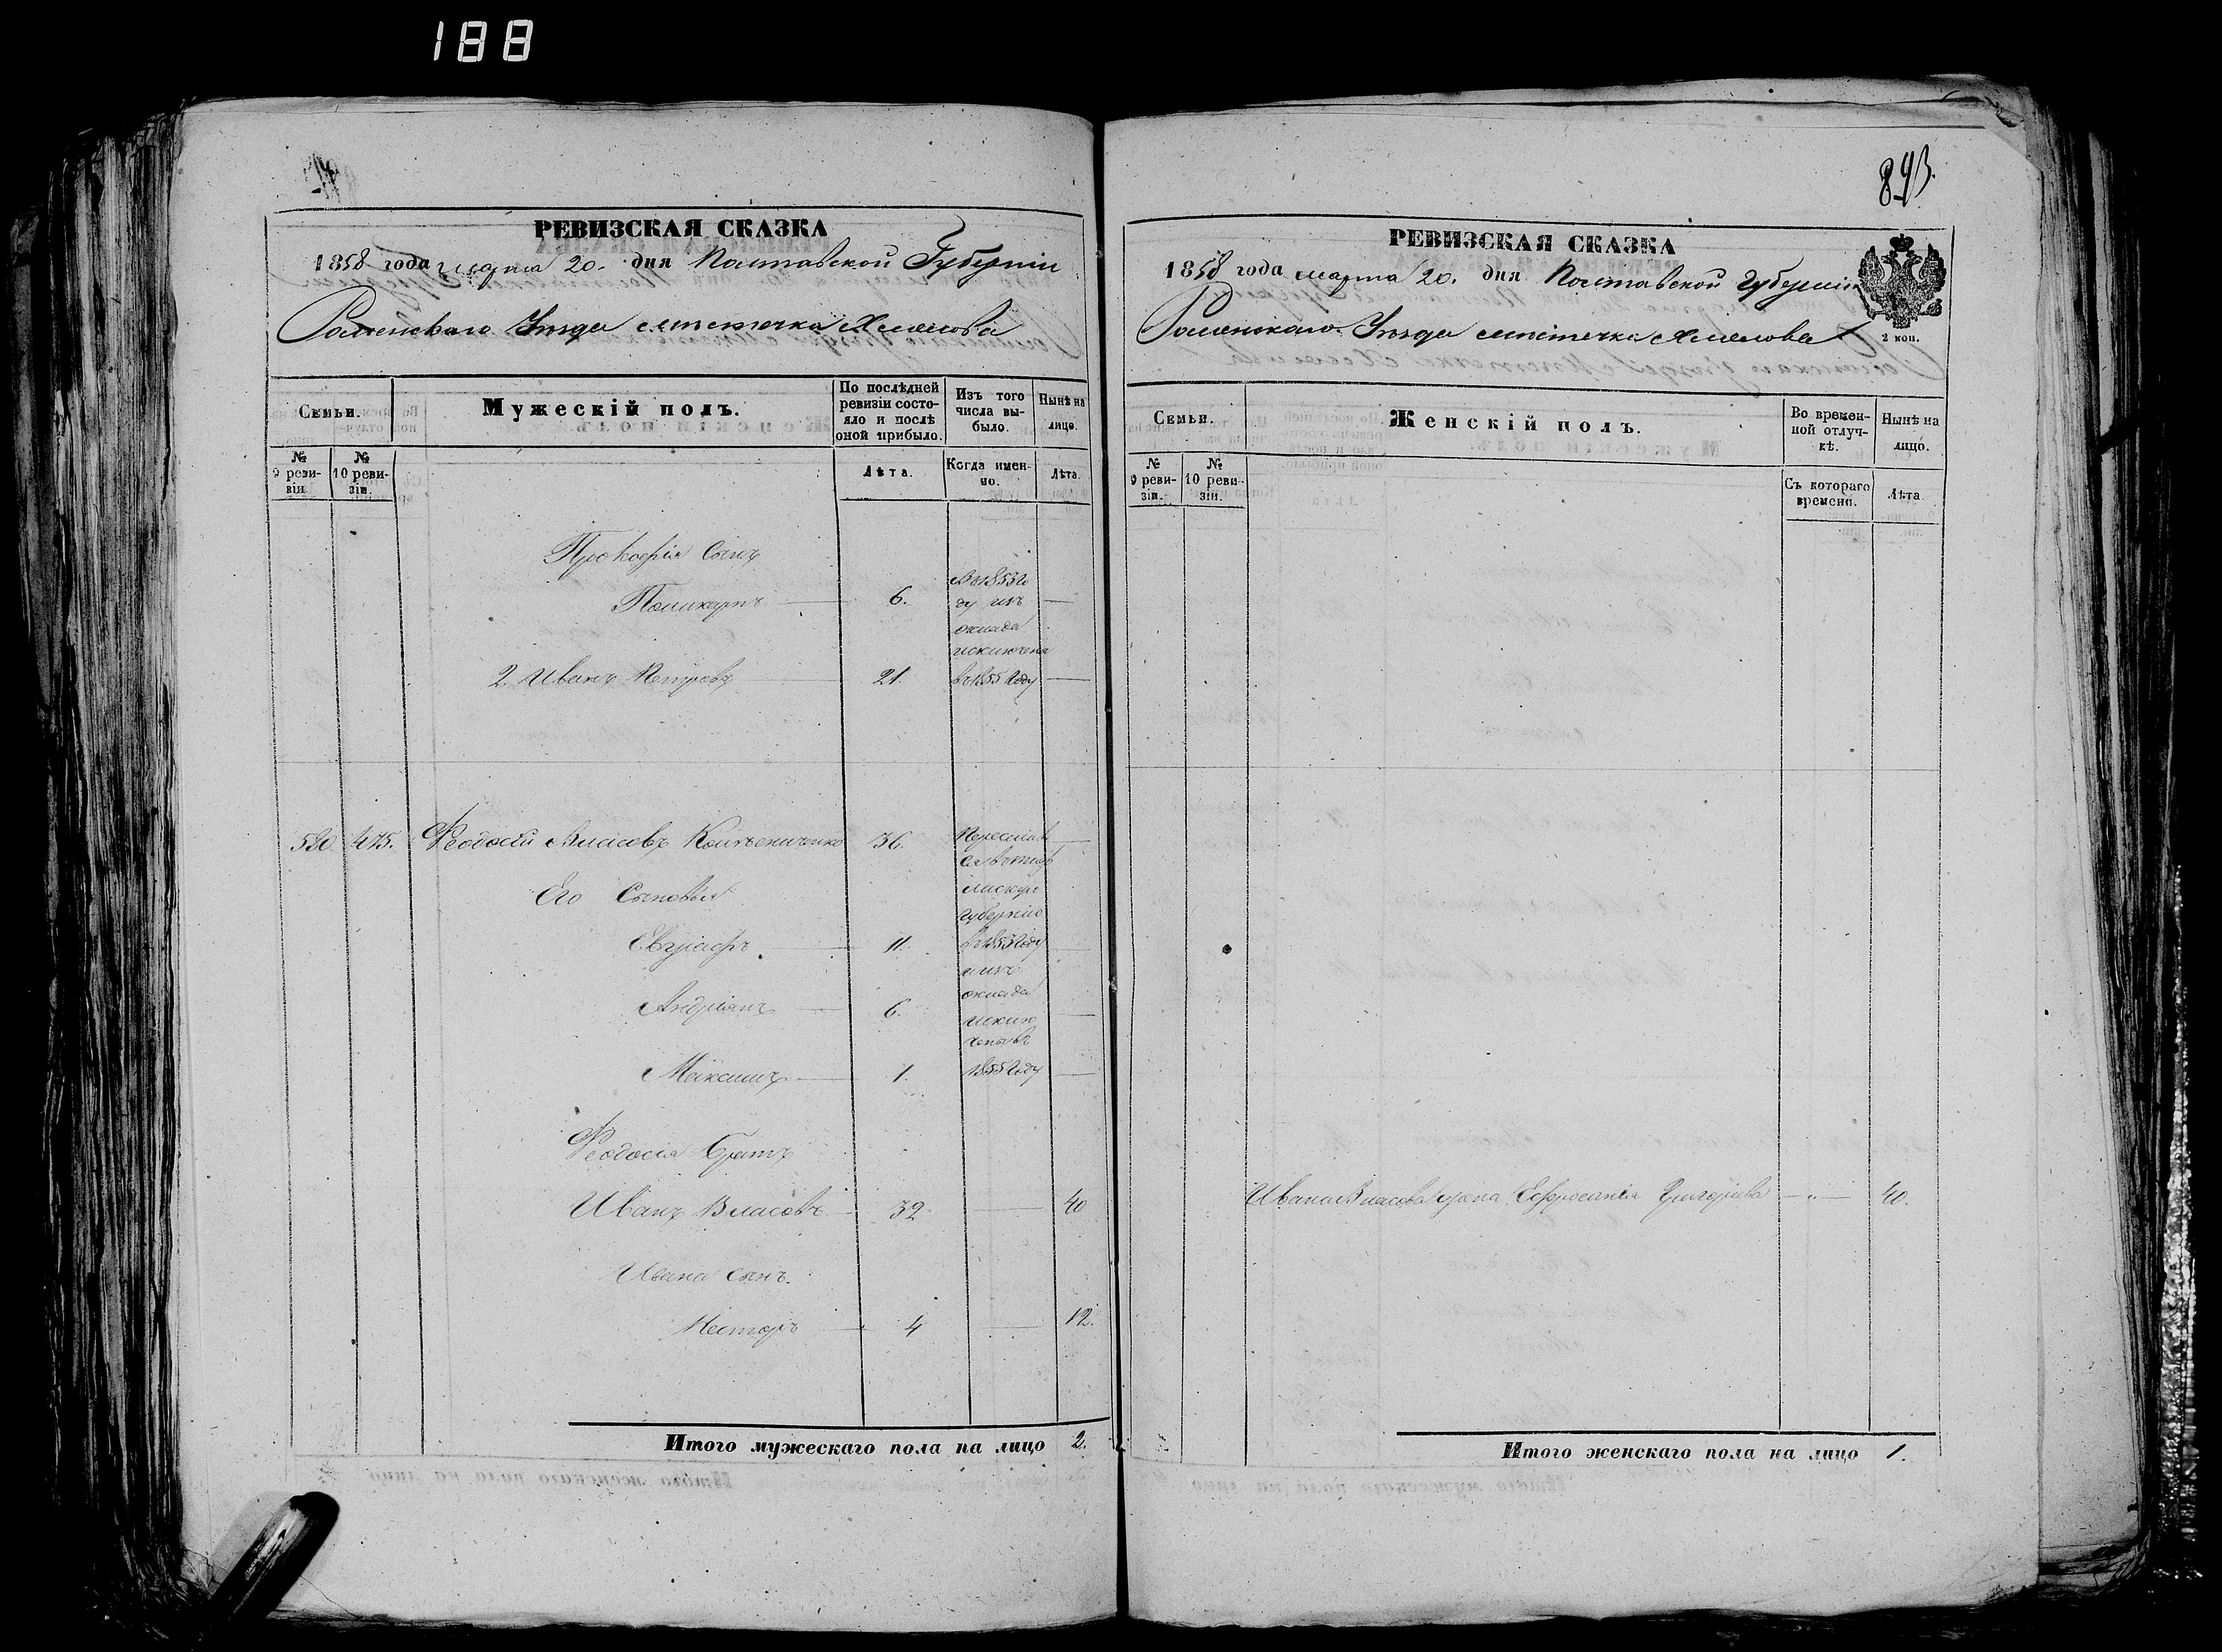 188
РЕВИЗСКАЯ СКАЗКА
1858 года марта 20. дня Полтавской Губерніи
Роменскаго Уѣзда мѣстечка Хмелова
Семьи.
Мужескій полъ.
По послѣдней ревизіи состояло и послѣ оной прибыло.
Изъ того числа выбыло.
Нынѣ на лицо.
№ 9 ревизіи.
№ 10 ревизіи.
Лѣта.
Когда именно.
Лѣта.
Прокофія Сынъ
Поликарпъ — 6. въ 1853 го
ду изъ —
оклада
исключенъ
2. Иванъ Петровъ — 21. въ 1855 году —
520. 475. Феодосій Власовъ 36. Переселил —
ся въ
Его Сыновья
губернію
Евграфъ. — 11. въ 1853 году —
изъ
оклада
Андріанъ — 6. исклю —
чены въ
Максимъ — 1. 1855 году —
Феодосія братъ
Иванъ Власовъ — 32 — 40
Ивана сынъ.
Несторъ — 4 — 12.
Итого мужескаго пола на лицо 2.
893.
РЕВИЗСКАЯ СКАЗКА
1858 года марта 20. дня Полтавской Губерніи
Роменскаго Уѣзда мѣстечка Хмелова
2 коп.
Семьи.
Женскій полъ.
Во временной отлучкѣ.
Нынѣ на лицо.
№ 9 ревизіи.
№ 10 ревизіи.
Съ котораго времени.
Лѣта
Ивана Власова жена Ефросинія Григорьева — „ — 40.
Итого женскаго пола на лицо 1.